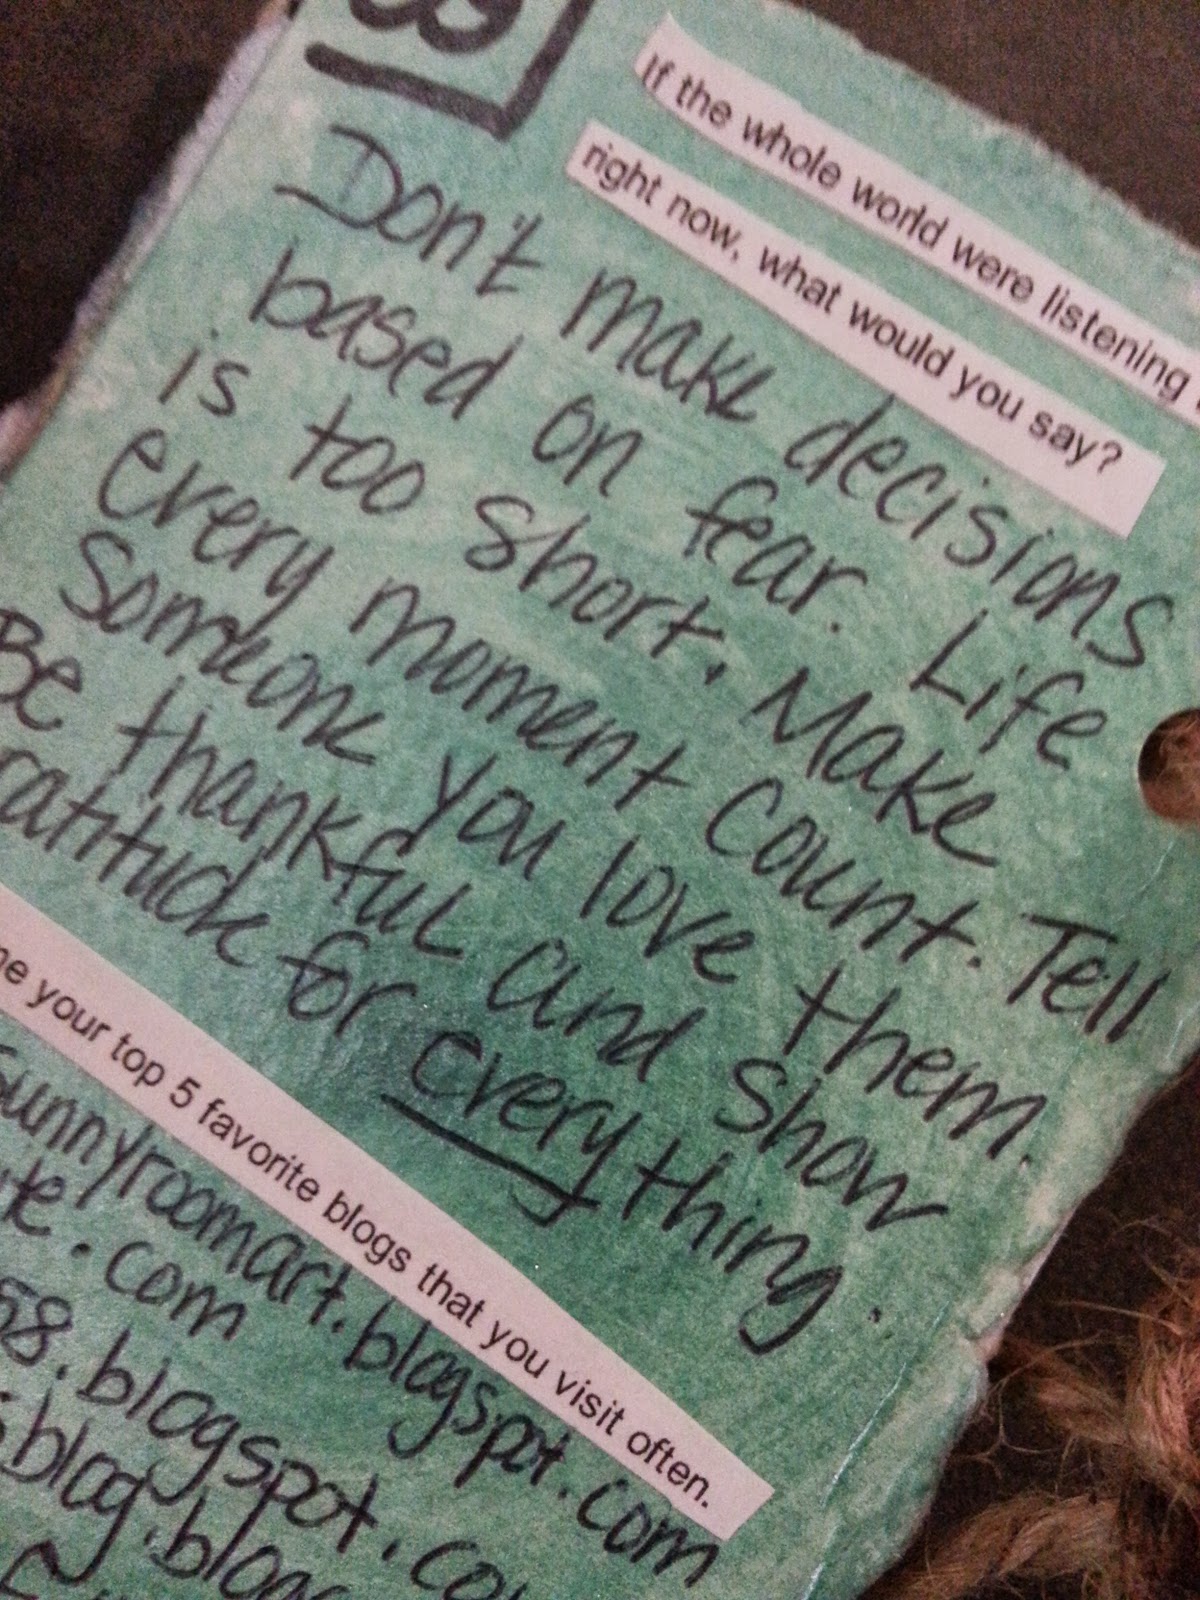 If the whole world were listening
right now, what would you say?
Don't make decisions
based on fear. Life
is too short. Make
every moment count. Tell
someone you love them.
Be thankful and show
ratitude for everything.
your top 5 favorite blogs that you visit often.
sunnyroomart.blogspot.com
.com
58.blogspot.co
blog.blog